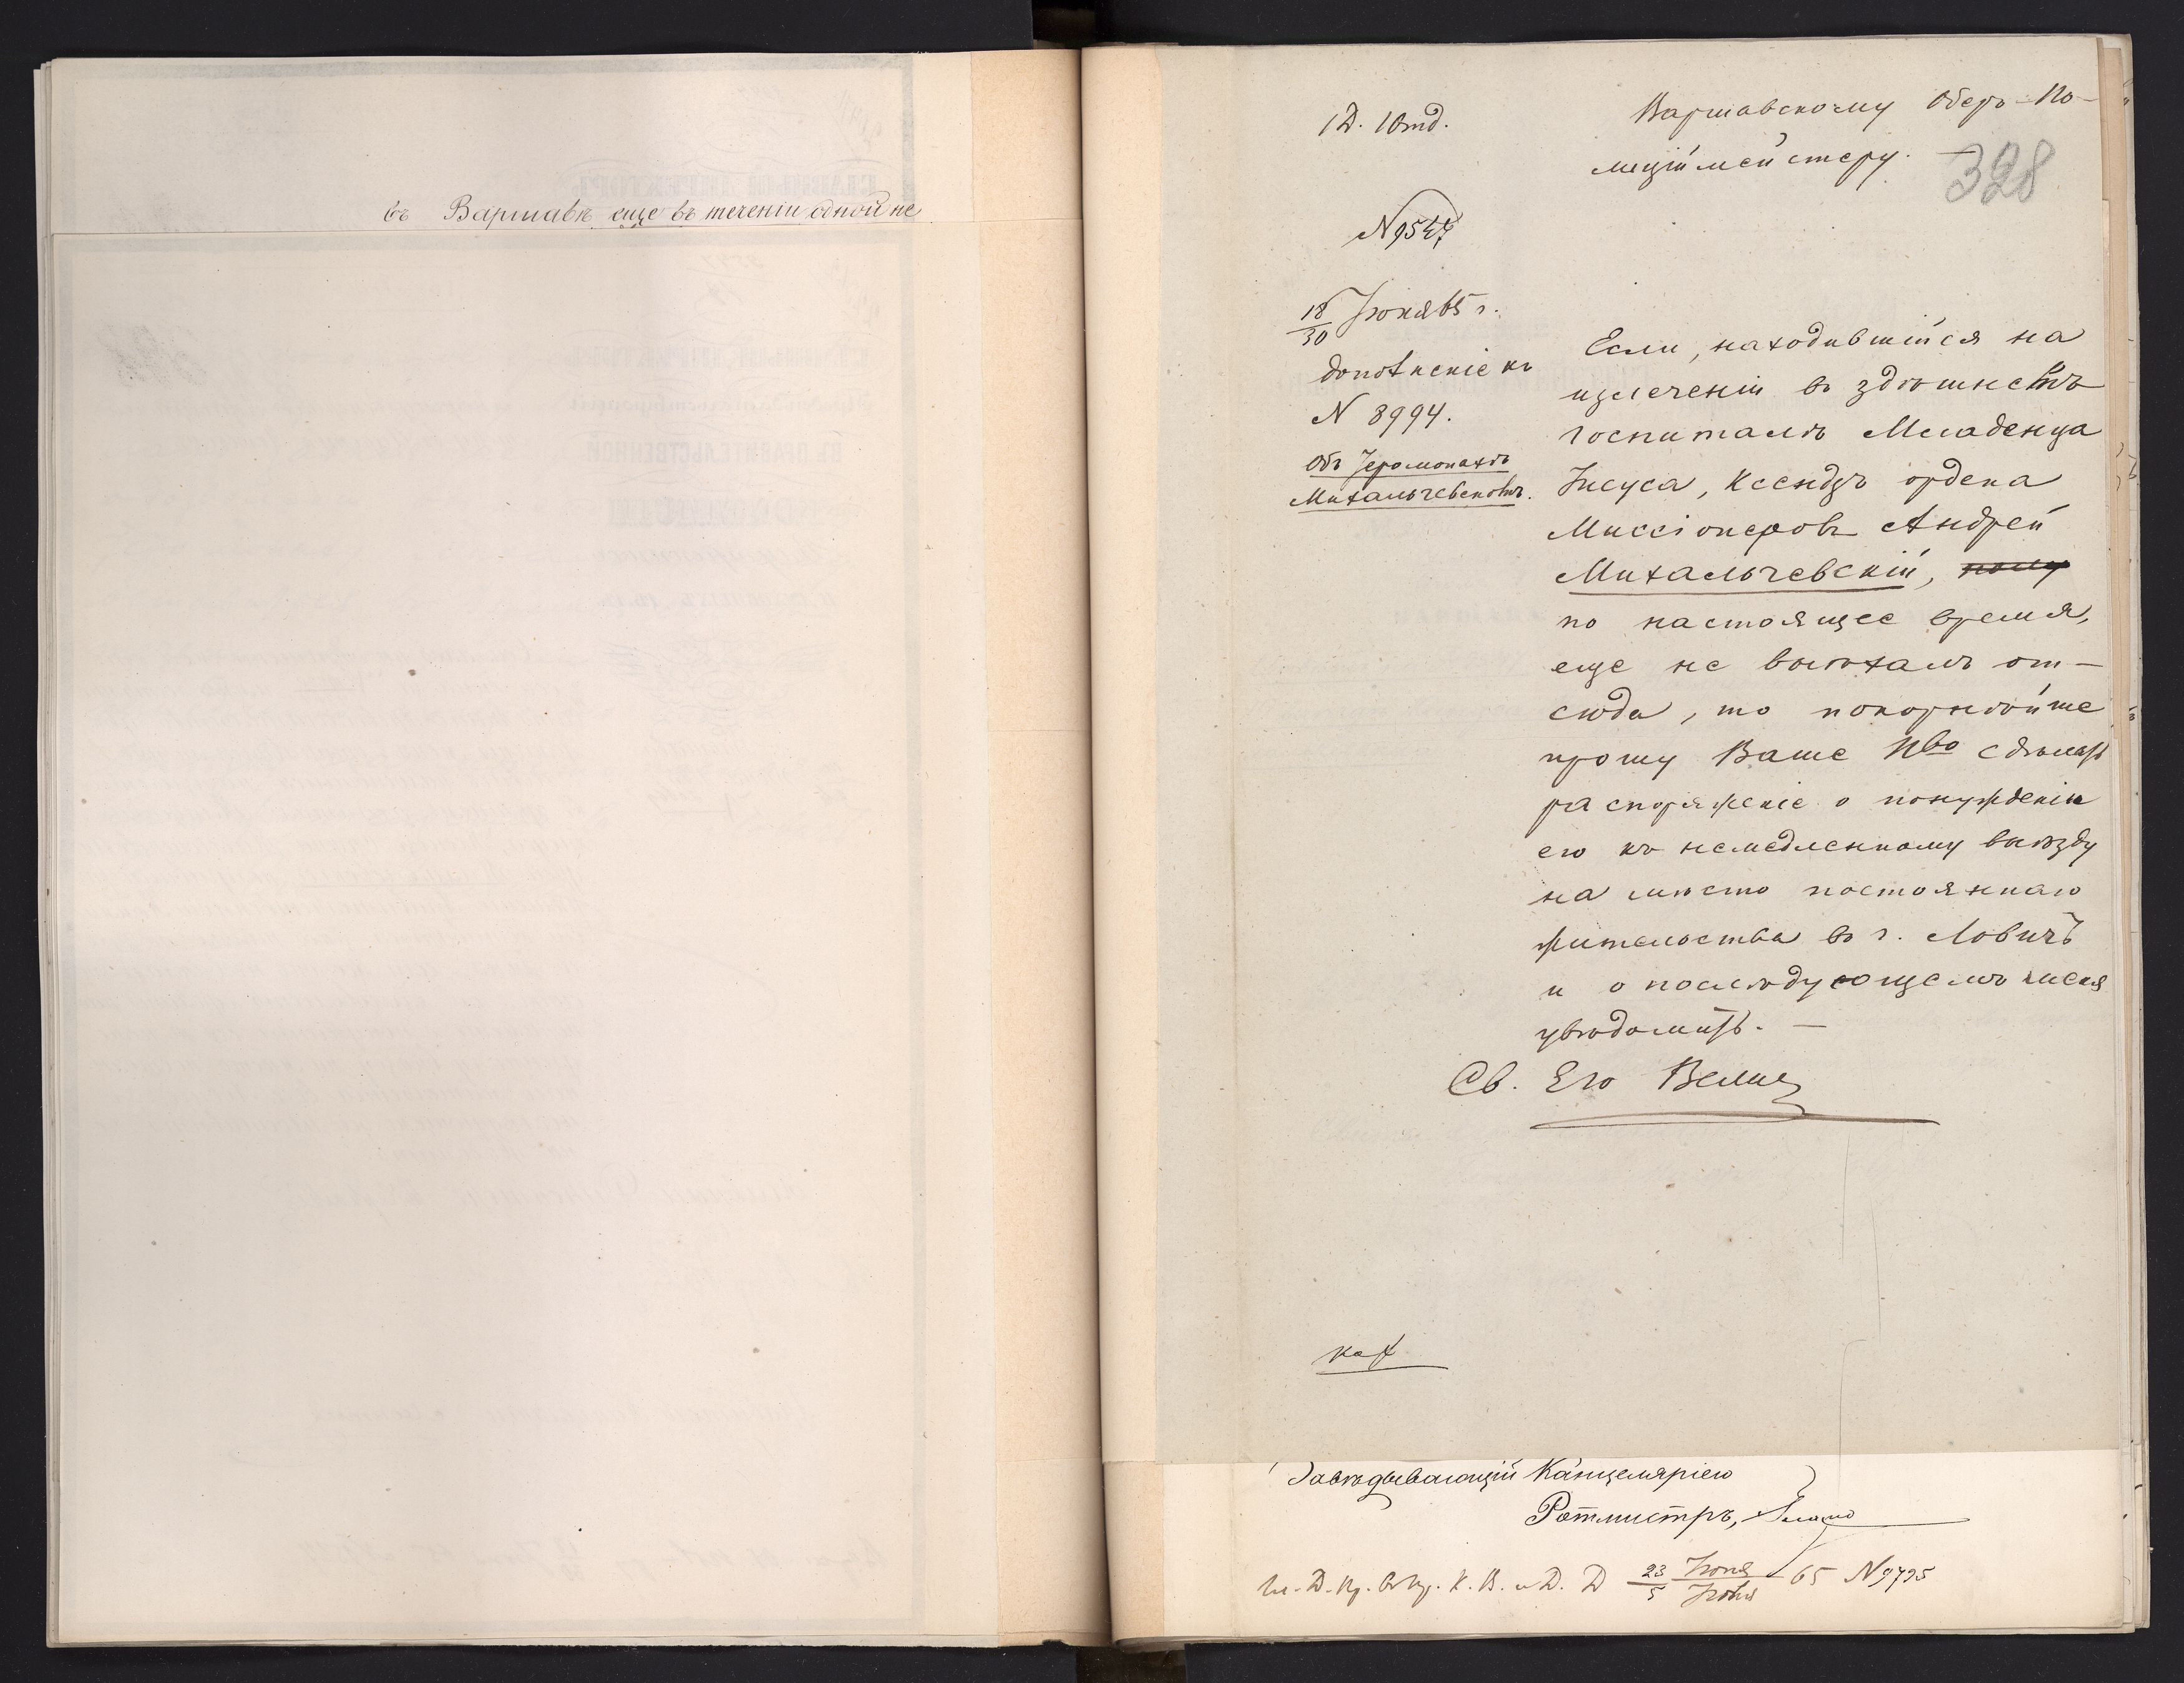 въ Варшавѣ еще въ теченіи одной не
1 Д. 1 Отд.
Варшавскому Оберъ-По-
лиціймейстеру.
328
№ 9547
18/30 Іюня 65 г.
дополненіе къ
№ 8994.
Объ Іеромонахѣ
Михальчевскомъ.
Если, находившійся на
излеченіи въ здѣшнемъ
госпиталѣ Младенца
Іисуса, Ксендзъ ордена
Миссіонеровъ Андрей
Михальчевскій,
по настоящее время,
еще не выѣхалъ от-
сюда, то покорнѣйше
прошу Ваше Пво сдѣлать
распоряженіе о понужденіи
его къ немедленному выѣзду
на мѣсто постояннаго
жительства въ г. Ловичъ
и о послѣдующемъ меня
увѣдомить. —
Св. Его Велич
Завѣдывающій Канцеляріею
Ротмистръ,
Гл. Д. Пр. въ Пр. К. В. и Д. Д 23/5 Іюня/Іюля 65 № 9795